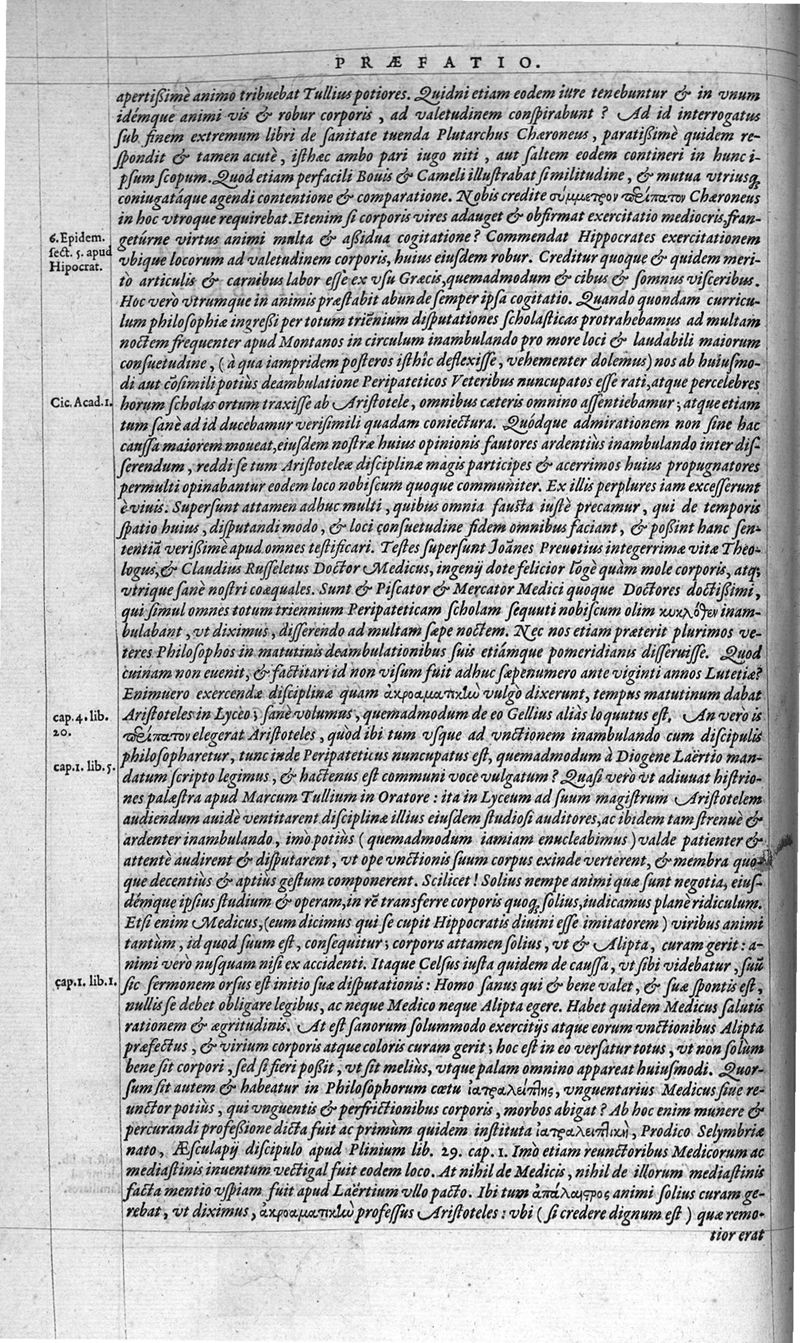 PRÆFATIO.
apertißimè animo tribuebat Tullius potiores. Quidni etiam eodem iure tenebuntur & in vnum
idémque animi vis & robur corporis, ad valetudinem conspirabunt? Ad id interrogatus
sub finem extremum libri de sanitate tuenda Plutarchus Chæroneus, paratißimè quidem re-
spondit & tamen acutè, isthæc ambo pari iugo niti, aut saltem eodem contineri in hunc i-
psum scopum. Quod etiam perfacili Bouis & Cameli illustrabat similitudine, & mutua vtriusq;
coniugatáque agendi contentione & comparatione. Nobis credite σύμμετρον περίπατον Chæroneus
in hoc vtroque requirebat. Etenim si corporis vires adauget & obfirmat exercitatio mediocris, fran-
6. Epidem.
sect. 5. apud
Hipocrat.
getúrne virtus animi multa & aßidua cogitatione? Commendat Hippocrates exercitationem
vbique locorum ad valetudinem corporis, huius eiusdem robur. Creditur quoque & quidem meri-
to articulis & carnibus labor esse ex vsu Græcis, quemadmodum & cibus & somnus visceribus.
Hoc verò vtrumque in animis præstabit abunde semper ipsa cogitatio. Quando quondam curricu-
lum philosophiæ ingreßi per totum triennium disputationes scholasticas protrahebamus ad multam
noctem frequenter apud Montanos in circulum inambulando pro more loci & laudabili maiorum
consuetudine, (à qua iampridem posteros isthîc deflexisse, vehementer dolemus) nos ab huiusmo-
di aut cõsimili potiùs deambulatione Peripateticos Veteribus nuncupatos esse rati, atque percelebres
Cic. Acad. 1.
horum scholas ortum traxisse ab Aristotele, omnibus cæteris omnino assentiebamur; atque etiam
tum sanè ad id ducebamur verisimili quadam coniectura. Quódque admirationem non sine hac
caussa maiorem moueat, eiusdem nostræ huius opinionis fautores ardentiùs inambulando inter dis-
serendum, reddi se tum Aristoteleæ disciplinæ magis participes & acerrimos huius propugnatores
permulti opinabantur eodem loco nobiscum quoque communiter. Ex illis perplures iam excesserunt
è viuis. Supersunt attamen adhuc multi, quibus omnia fausta iustè precamur, qui de temporis
spatio huius, disputandi modo, & loci consuetudine fidem omnibus faciant, & poßint hanc sen-
tentiã verißimè apud omnes testificari. Testes supersunt Joãnes Preuotius integerrimæ vitæ Theo-
logus, & Claudius Russeletus Doctor Medicus, ingenij dote felicior lõgè quàm mole corporis, atq;
vtrique sanè nostri coæquales. Sunt & Piscator & Mercator Medici quoque Doctores doctißimi,
qui simul omnes totum triennium Peripateticam scholam sequuti nobiscum olim κυκλόθεν inam-
bulabant, vt diximus, disserendo ad multam sæpe noctem. Nec nos etiam præterit plurimos ve-
teres Philosophos in matutinis deambulationibus suis etiámque pomeridianis disseruisse. Quod
cuinam non euenit, & factitari id non visum fuit adhuc sæpenumero ante viginti annos Lutetiæ?
Enimuero exercendæ disciplinæ quam ἀκροαματικὴν vulgò dixerunt, tempus matutinum dabat
cap. 4. lib.
20.
Aristoteles in Lyceo; sanè volumus, quemadmodum de eo Gellius aliàs loquutus est. An vero is
περίπατον elegerat Aristoteles, quòd ibi tum vsque ad vnctionem inambulando cum discipulis
philosopharetur, tunc inde Peripateticus nuncupatus est, quemadmodum à Diogene Laërtio man-
cap. 1. lib. 5.
datum scripto legimus, & hactenus est communi voce vulgatum? Quasi vero vt adiuuat histrio-
nes palæstra apud Marcum Tullium in Oratore: ita in Lyceum ad suum magistrum Aristotelem
audiendum auidè ventitarent disciplinæ illius eiusdem studiosi auditores, ac ibidem tam strenuè &
ardenter inambulando, imò potiùs (quemadmodum iamiam enucleabimus) valde patienter &
attentè audirent & disputarent, vt ope vnctionis suum corpus exinde verterent, & membra quo-
que decentiùs & aptiùs gestum componerent. Scilicet! Solius nempe animi quæ sunt negotia, eius-
démque ipsius studium & operam, in rẽ transferre corporis quoq, solius, iudicamus planè ridiculum.
Etsi enim Medicus, (eum dicimus qui se cupit Hippocratis diuini esse imitatorem) viribus animi
tantùm, id quod suum est, consequitur; corporis attamen solius, vt & Alipta, curam gerit: a-
nimi verò nusquam nisi ex accidenti. Itaque Celsus iusta quidem de caussa, vt sibi videbatur, suũ
cap. 1. lib. 1.
sic sermonem orsus est initio suæ disputationis: Homo sanus qui & bene valet, & suæ spontis est,
nullis se debet obligare legibus, ac neque Medico neque Alipta egere. Habet quidem Medicus salutis
rationem & ægritudinis. At est sanorum solummodo exercitijs atque eorum vnctionibus Alipta
præfectus, & virium corporis atque coloris curam gerit; hoc est in eo versatur totus, vt non solùm
bene sit corpori, sed si fieri poßit, vt sit meliùs, vtque palam omnino appareat huiusmodi. Quor-
sum sit autem & habeatur in Philosophorum cœtu ἰατραλείπτης, vnguentarius Medicus siue re-
unctor potiùs, qui vnguentis & perfrictionibus corporis, morbos abigat? Ab hoc enim munere &
percurandi profeßione dicta fuit ac primùm quidem instituta ἰατραλειπτικὴ, Prodico Selymbriæ
nato, Æsculapij discipulo apud Plinium lib. 29. cap. 1. Imò etiam reunctoribus Medicorum ac
mediastinis inuentum vectigal fuit eodem loco. At nihil de Medicis, nihil de illorum mediastinis
facta mentio vspiam fuit apud Laërtium vllo pacto. Ibi tum ἀπάλαιστρος animi solius curam ge-
rebat, vt diximus, ἀκροαματικὴν professus Aristoteles: vbi (si credere dignum est) quæ remo-
tior erat